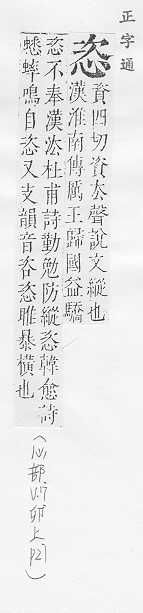 正字通
恣
資四切資厺聲說文縱也
漢淮南傳厲王歸國益驕
恣不奉漢㳒杜甫詩勤勉防縱恣韓愈詩
蟋蟀鳴自恣又支韻音咨恣睢暴橫也
(心部, 卯上 P21)